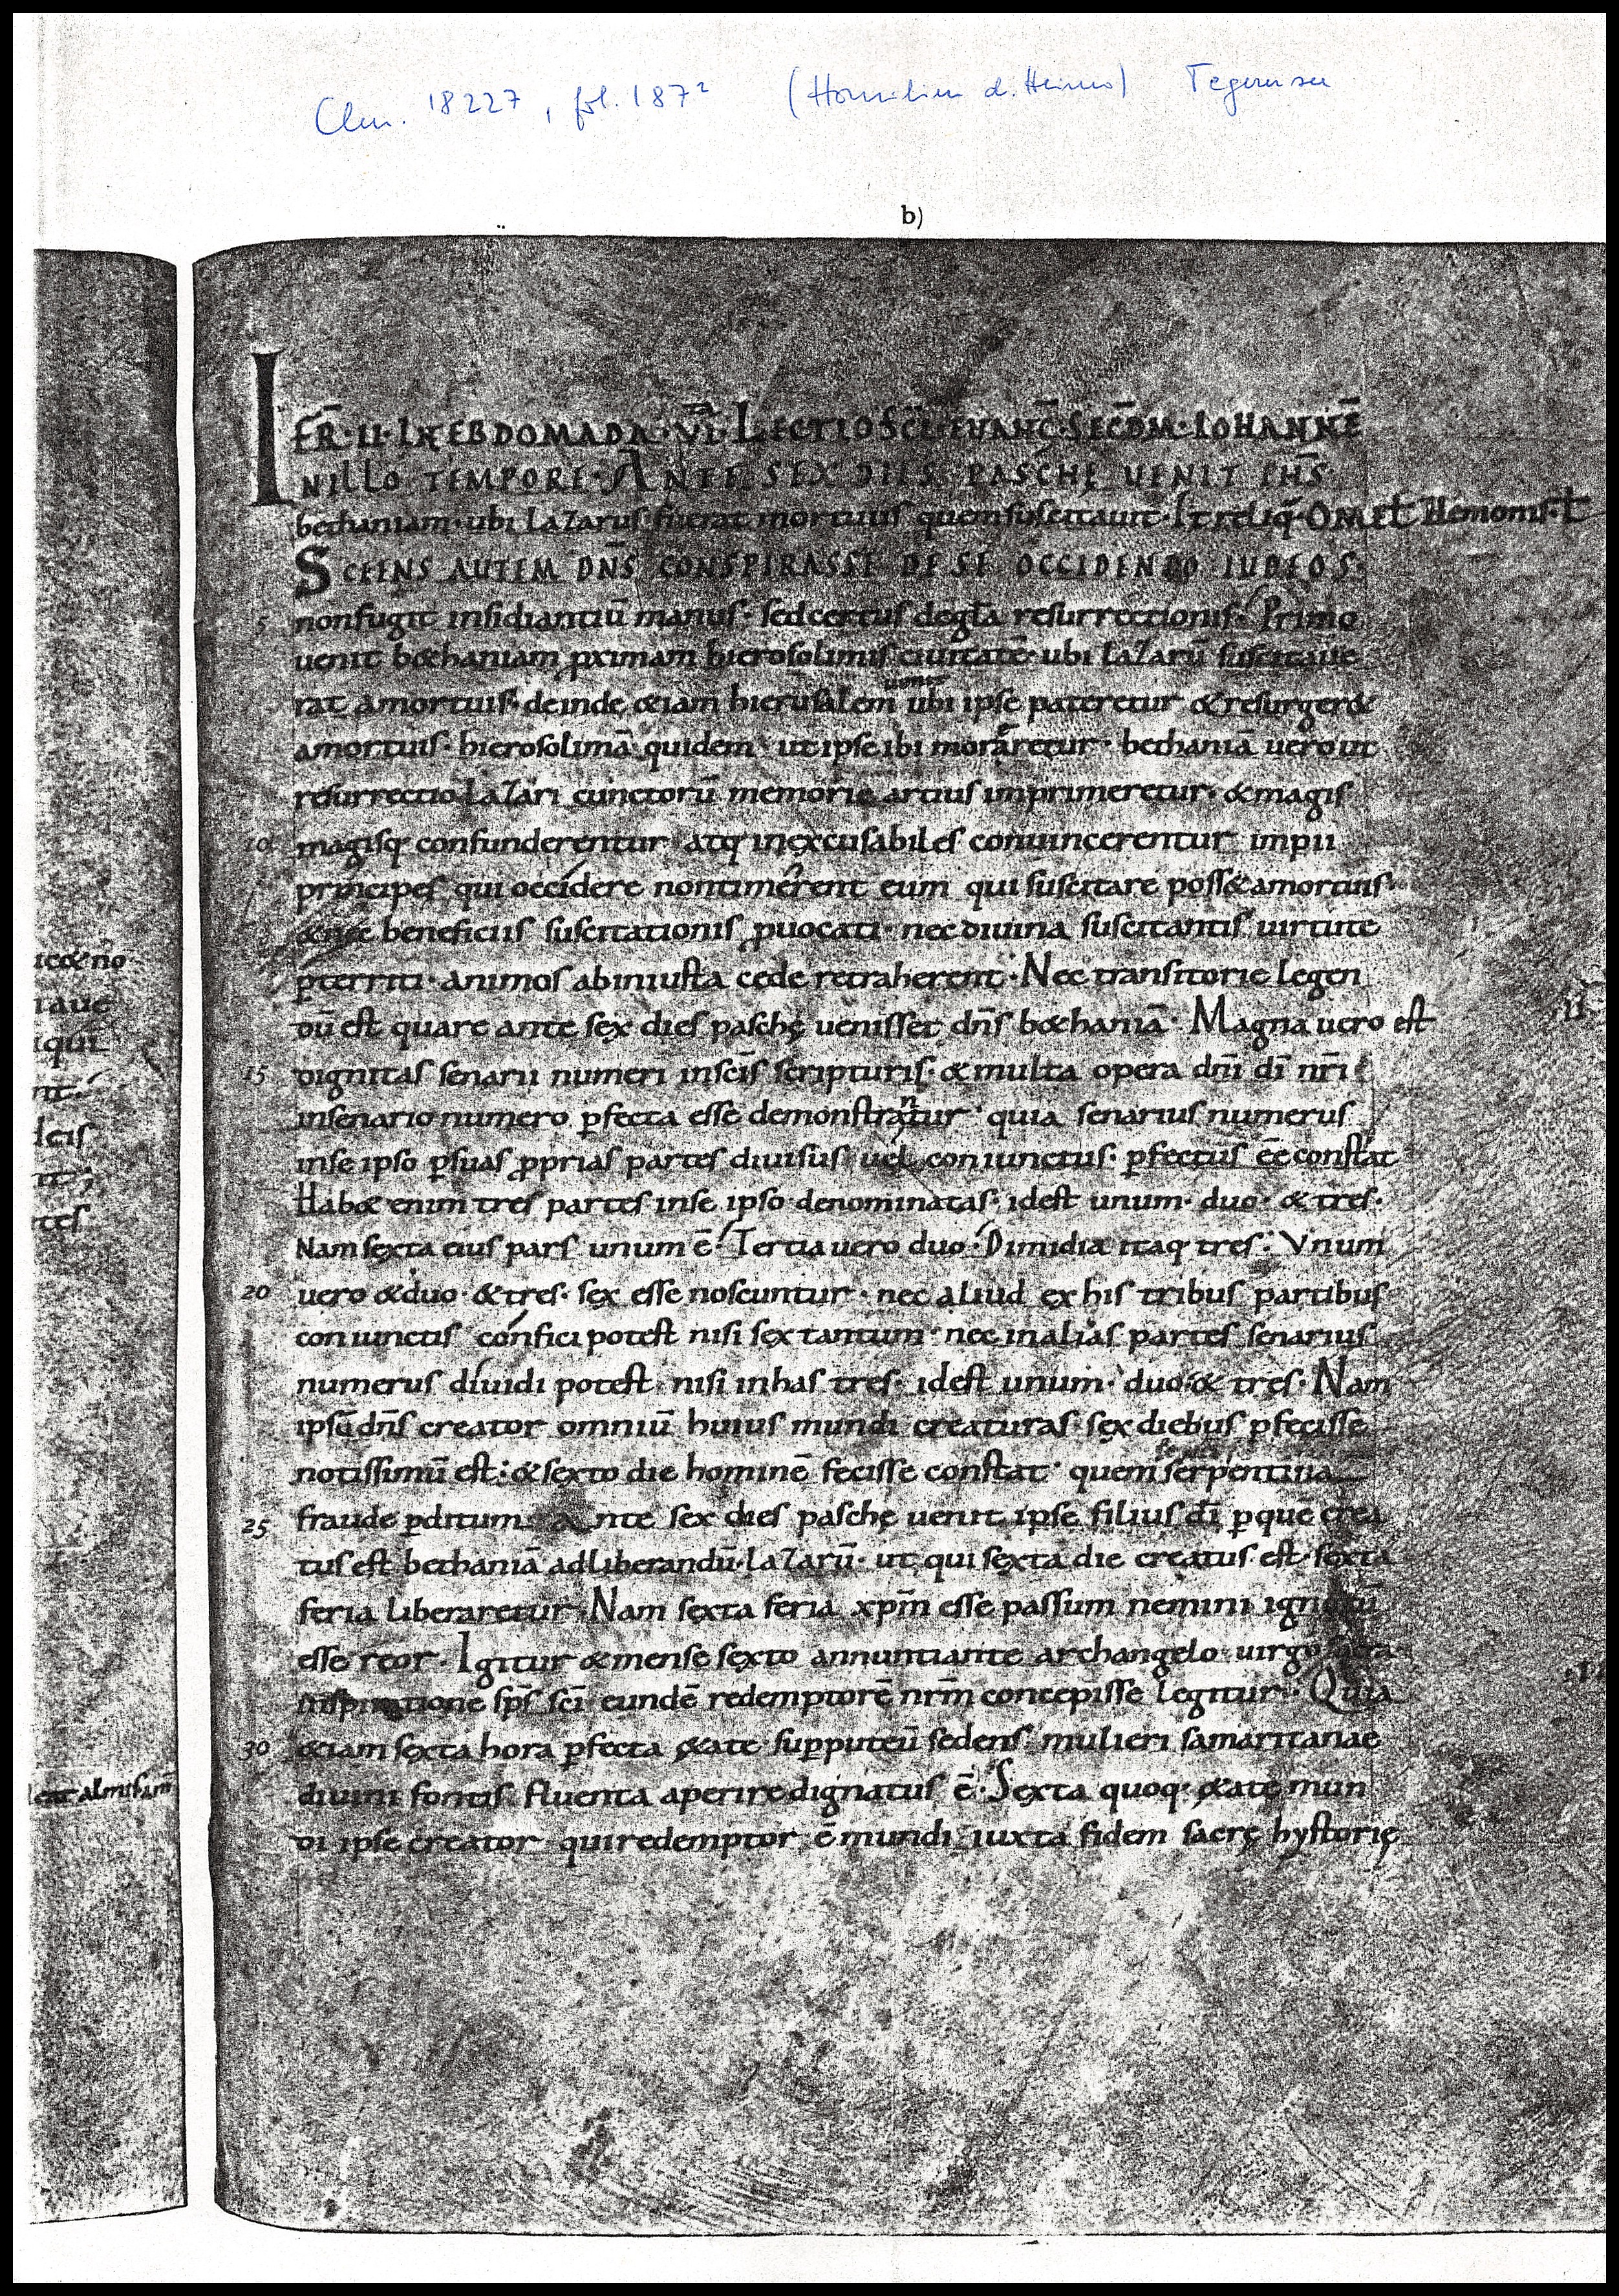 Clm. 18227, fol. 187² (Homilien d. Heimo) Tegernsee
b)
FER̄·II·IN EBDOMADA·VI·LECTIO SC̄I EVANḠ·SEC̄DM·IOHANNĒ
INILLO TEMPORE·ANTE SEX DIES PASCHĘ UENIT IHS̄
bethaniam·ubi lazarus fuerat mortuus quem suscitauit·Et reliq̄·OMEL̄
SCIENS AUTEM DN̄S CONSPIRASSE DE SE OCCIDENDO IUDEOS·
5 nonfugit insidiantiū manus· sedcertus degl̄a resurrectionis· Primo
uenit b&haniam ꝓximam hierosolimis ciuitatē· ubi lazarū suscitaue
rat amortuis· deinde &iam hierusalem ubi ipse pateretur & resurger&
amortuis· hierosolimā quidem ut ipse ibi moreretur· bethaniā uero ut
resurrectio lazari cunctorū memorię artius imprimeretur· & magis
10 magisq· confunderentur atq· inexcusabiles conuincerentur impii
principes, qui occidere nontimerent eum qui suscitare poss& amortuis·
& nec beneficiis suscitationis ꝓuocati· nec diuina suscitantis uirtute
p̄territi· animos abiniusta cede retraherent· Nec transitorie legen
dū est quare ante sex dies paschę uenisset dn̄s b&haniā· Magna uero est
15 dignitas senarii numeri insc̄is scripturis· & multa opera dn̄i dī nr̄i
insenario numero ꝑfecta esse demonstrantur· quia senarius numerus
inse ipso ꝑsuas ꝓprias partes diuisus uel coniunctus· ꝑfectus ēē constat
Hab& enim tres partes inse ipso denominatas· idest unum· duo· & tres·
Nam sexta eius pars unum ē· Tertia uero duo· Dimidia itaq· tres· Vnum
20 uero & duo· & tres· sex esse noscuntur· nec aliud ex his tribus partibus
coniunctis confici potest nisi sex tantum· nec in alias partes senarius
numerus diuidi potest nisi inhas tres· idest unum· duo· & tres· Nam
ipsū dn̄s creator omniū huius mundi creaturas sex diebus ꝑfecisse
notissimū est· & sexto die hominē fecisse constat· quem serpentina
25 fraude ꝑditum Ante sex dies paschę uenit ipse filius dī ꝑ quē crea
tus est bethaniā adliberandū lazarū· ut qui sexta die creatus est· sexta
feria liberaretur· Nam sexta feria xpm̄ esse passum nemini ignotū
esse reor· Igitur & mense sexto annuntiante archangelo uirgo
inspiratione sps̄ sc̄i eundē redemptorē nr̄m concepisse legitur· Quia
30 &iam sexta hora ꝑfecta &ate supputeū sedens mulieri samaritanae
diuini fontis fluenta aperire dignatus ē· Sexta quoq· &ate mun
di ipse creator qui redemptor ē mundi iuxta fidem sacrę hystorię